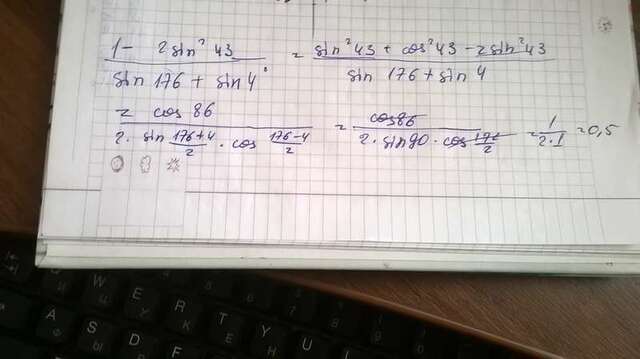 1 - 2 sin² 43 / sin 176 + sin 4° = sin² 43 + cos² 43 - 2 sin² 43 / sin 176 + sin 4
= cos 86 / 2 · sin 176+4/2 · cos 176-4/2 = cos 86 / 2 · sin 90 · cos 172/2 = 1 / 2 · 1 = 0,5
W E R T Y U
A S D F